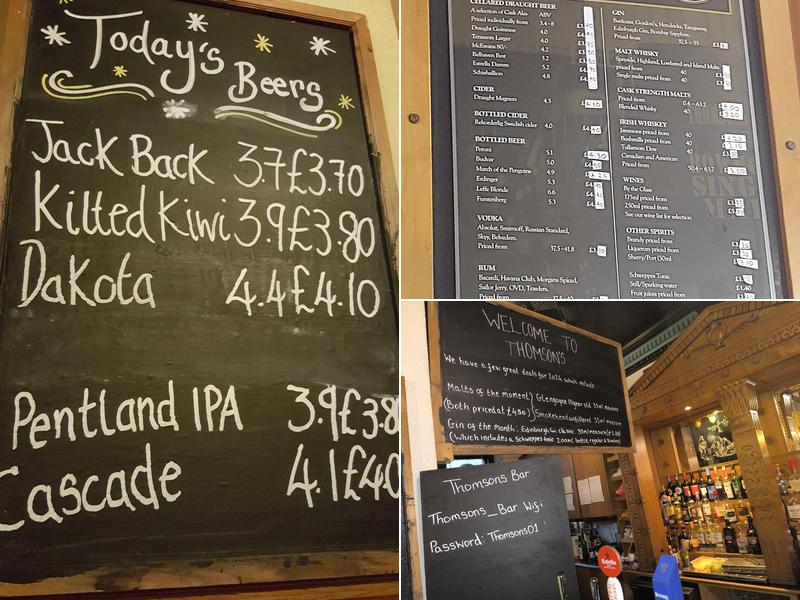 Today's
Beers
Jack Back 3.7 £3.70
Kilted Kiwi 3.9 £3.80
Dakota 4.4 £4.10
Pentland IPA 3.9 £3.8
Cascade 4.1 £4.0
CELLARED DRAUGHT BEER
A selection of Cask Ales ABV
Priced individually from 3.4-8
Draught Guinness 4.0
Tennents Larger 4.0
McEwans 80/- 4.2
Belhaven Best 3.2
Estrella Damm 5.2
Schiehallion 4.8
CIDER
Draught Magners 4.5 £4.10
BOTTLED CIDER
Rekorderlig Swedish cider 4.0
BOTTLED BEER
Peroni 5.1
Budvar 5.0
March of the Penguins 4.9
Erdinger 5.3
Leffe Blonde 6.6
Furstenberg 5.3
VODKA
Absolut, Smirnoff, Russian Standard,
Skyy, Belvedere.
Priced from 37.5-41.8
RUM
Bacardi, Havana Club, Morgans Spiced,
Sailor Jerry, OVD, Trawlers.
Priced from
GIN
Beefeater, Gordon's, Hendricks, Tanqueray,
Edinburgh Gin, Bombay Sapphire.
Priced from 37.5 - 55
MALT WHISKY
Speyside, Highland, Lowland and Island Malts
priced from 40
Single malts priced from 40
CASK STRENGTH MALTS
Priced from 0.4 - 63.7 £4.00
Blended Whisky 40 £3.20
IRISH WHISKEY
Jamesons priced from 40
Bushmills priced from 40
Tullamore Dew 40
Canadian and American
Priced from 50.4 - 63.7
WINES
By the Glass
175ml priced from
250ml priced from
See our wine list for selection
OTHER SPIRITS
Brandy priced from
Liqueurs priced from
Sherry/Port (50ml)
Schweppes Tonic
Still/Sparking water £1.40
Fruit juices priced from
WELCOME TO
THOMSON'S
We have a few great deals for 2022 which include:
Malts of the moment) Glengoyne 10 year old 35ml measure
(Both priced at £4.80) Smokehead unfiltered 35ml measure
Gin of the Month: Edinburgh Gin classic 35ml measure
(Which includes a Schweppes tonic 200ml bottle, regular & slimline)
Thomsons Bar
Thomsons_Bar Wifi
Password: Thomsons01
Estrella